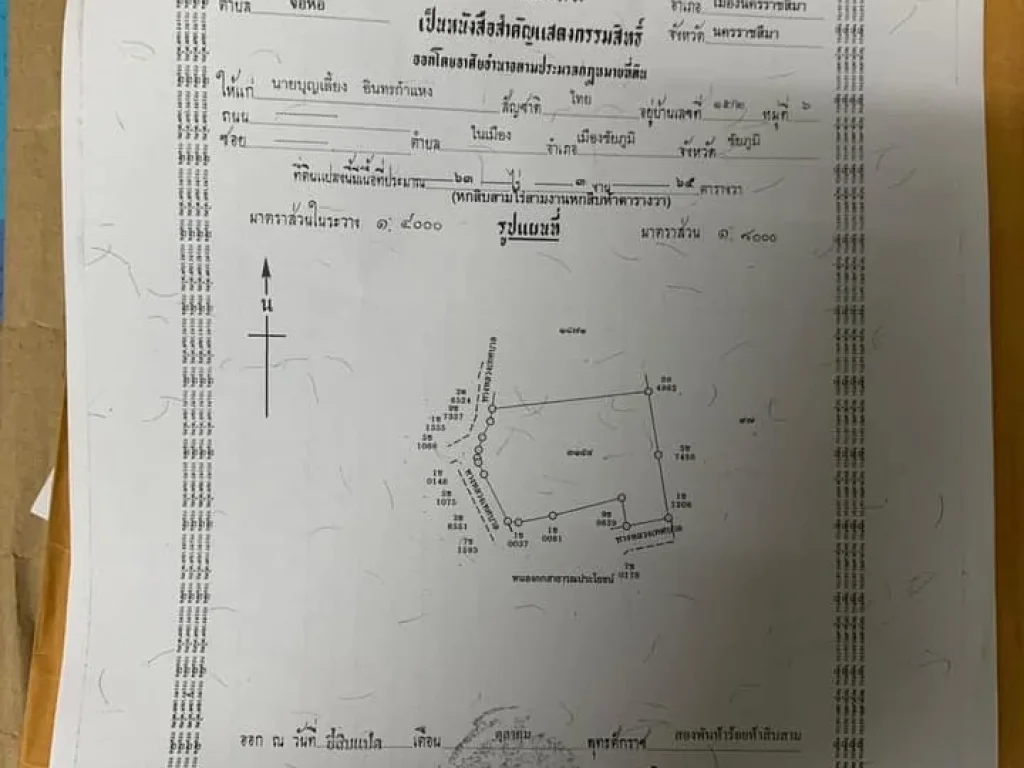 ตำบล จอหอ อำเภอ เมืองนครราชสีมา
เป็นหนังสือสำคัญแสดงกรรมสิทธิ์ จังหวัด นครราชสีมา
ออกโดยอาศัยอำนาจตามประมวลกฎหมายที่ดิน
ให้แก่ นายบุญเลี้ยง อินทรกำแหง สัญชาติ ไทย อยู่บ้านเลขที่ ๑๕/๒ หมู่ที่ ๖
ถนน
ซอย ตำบล ในเมือง อำเภอ เมืองชัยภูมิ จังหวัด ชัยภูมิ
ที่ดินแปลงนี้มีเนื้อที่ประมาณ ๖๓ ไร่ ๓ งาน ๖๕ ตารางวา
(หกสิบสามไร่สามงานหกสิบห้าตารางวา)
มาตราส่วนในระวาง ๑: ๔๐๐๐ รูปแผนที่ มาตราส่วน ๑: ๘๐๐๐
น
๑๘๗๑
ทางหลวงเทศบาล
4982
2ช
6524
9ช
7357
1ช
1355
1066
๗๗
7450
๓๑๕๔
1ช
0146
1075
2ช
6551
7ช
1593
ทางหลวงเทศบาล
1ช
0037
1ช
0081
9ช
0639
1ช
ทางหลวงเทศบาล
7ช
0178
หนองกกสาธารณประโยชน์
ออก ณ วันที่ ยี่สิบแปด เดือน ตุลาคม พุทธศักราช สองพันห้าร้อยห้าสิบสาม